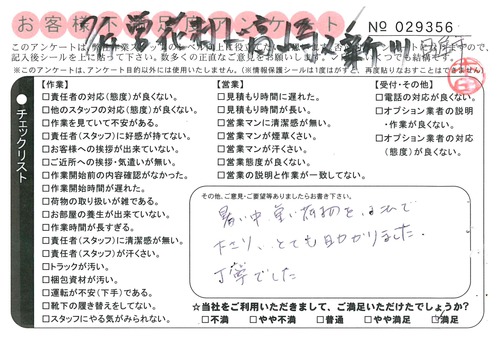 お客様不満足度アンケート
№ 029356
このアンケートは、弊社作業スタッフのレベル向上に役立てたい
記入後シールを上に貼って下さい。数多くの正直なご意見をお願いします。
※このアンケートは、アンケート目的以外には使用いたしません。(※情報保護シールは1度がすと、再度貼りなおすことはできません)
チェックリスト
【作業】
□責任者の対応(態度)が良くない。
□他のスタッフの対応(態度)が良くない。
□作業を見ていて不安がある。
□責任者(スタッフ)に好感が持てない。
□お客様への挨拶が出来ていない。
□ご近所への挨拶・気遣いが無い。
□作業開始前の内容確認がなかった。
□作業開始時間が遅れた。
□荷物の取り扱いが雑である。
□お部屋の養生が出来ていない。
□作業時間が長すぎる。
□責任者(スタッフ)に清潔感が無い。
□責任者(スタッフ)が汗くさい。
□トラックが汚い。
□梱包資材が汚い。
□運転が不安(下手)である。
□靴下の履き替えをしてない。
□スタッフにやる気がみられない。
【営業】
□見積もり時間に遅れた。
□見積もり時間が長い。
□営業マンに清潔感が無い。
□営業マンが煙草くさい。
□営業マンが汗くさい。
□営業態度が良くない。
□営業の説明と作業が一致してない。
【受付・その他】
□電話の対応が良くない。
□オプション業者の説明
・作業が良くない。
□オプション業者の対応
(態度)が良くない。
その他、ご意見・ご要望等ありましたらお書き下さい。
暑い中、重い荷物を運んで
下さり、とても助かりました。
丁寧でした
☆当社をご利用いただきまして、ご満足いただけたでしょうか?
□不満 □やや不満 □普通 □やや満足 □満足